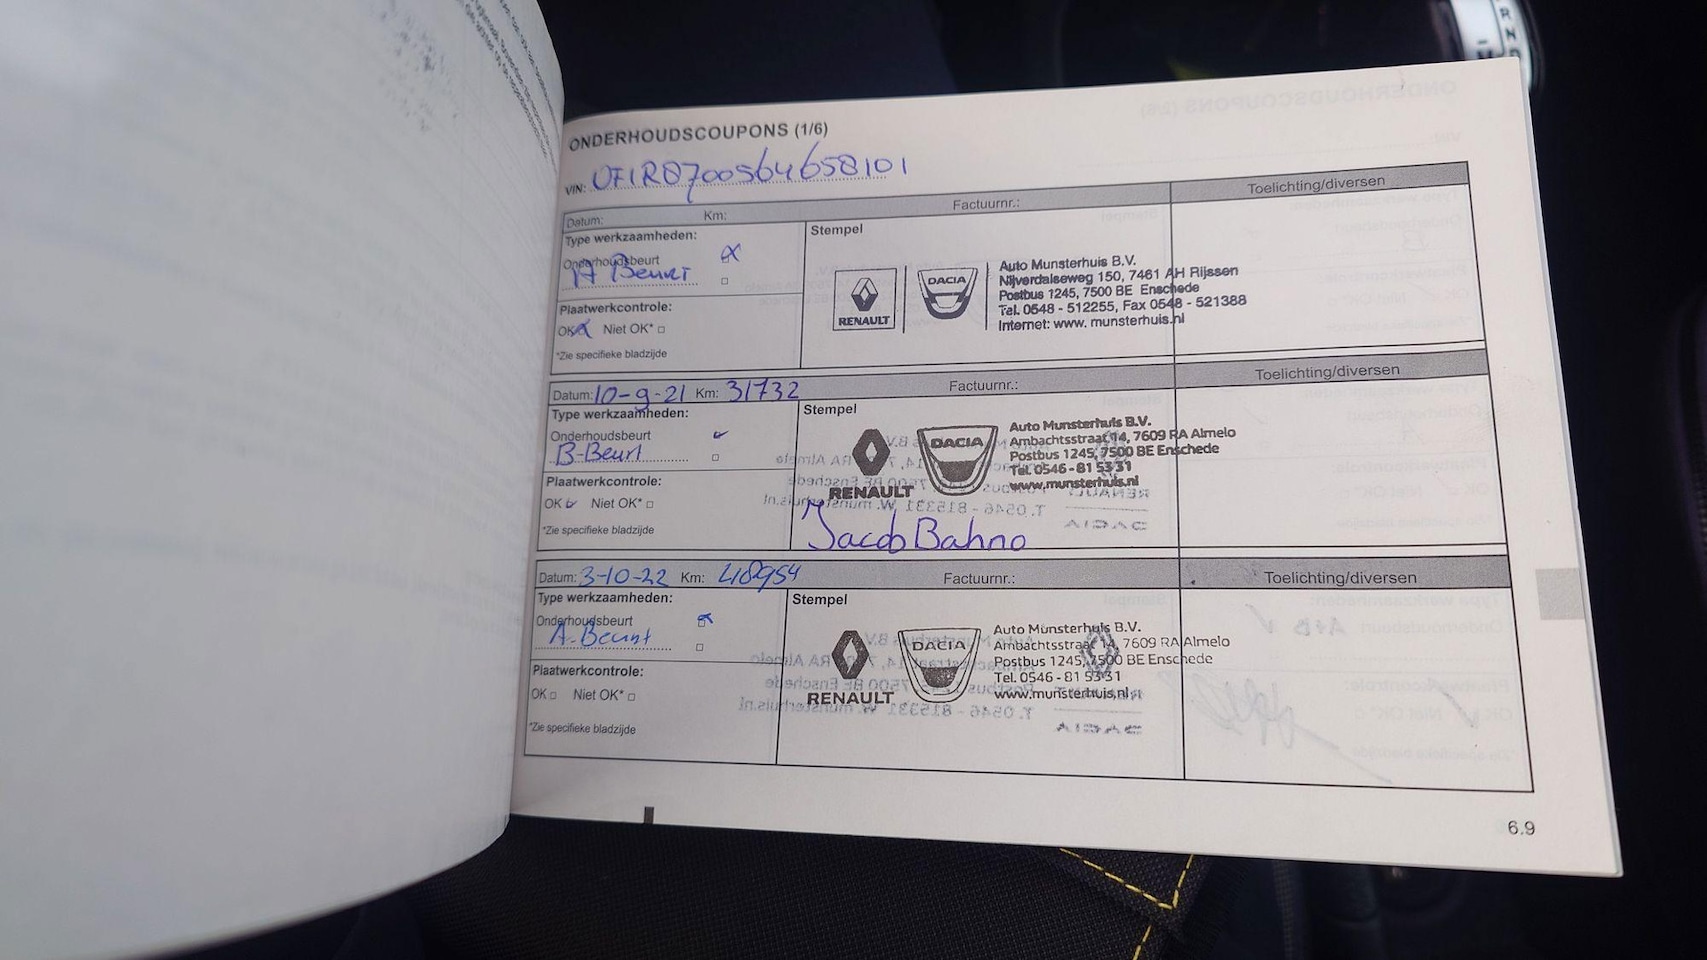 ONDERHOUDSCOUPONS (1/6)
VIN: UF1R8700564658101
Datum: Km: Factuurnr.: Toelichting/diversen
Type werkzaamheden:
Onderhoudsbeurt
A Beurt
Plaatwerkcontrole:
OK Niet OK*
*Zie specifieke bladzijde
Stempel
RENAULT
DACIA
Auto Munsterhuis B.V.
Nijverdalseweg 150, 7461 AH Rijssen
Postbus 1245, 7500 BE Enschede
Tel. 0548 - 512255, Fax 0548 - 521388
Internet: www. munsterhuis.nl
Datum: 10-9-21 Km: 31732 Factuurnr.: Toelichting/diversen
Type werkzaamheden:
Onderhoudsbeurt
B-Beurt
Plaatwerkcontrole:
OK Niet OK*
*Zie specifieke bladzijde
Stempel
RENAULT
DACIA
Auto Munsterhuis B.V.
Ambachtsstraat 14, 7609 RA Almelo
Postbus 1245, 7500 BE Enschede
Tel. 0546 - 81 53 31
www.munsterhuis.nl
Jacob Bahno
Datum: 3-10-22 Km: 48954 Factuurnr.: Toelichting/diversen
Type werkzaamheden:
Onderhoudsbeurt
A-Beurt
Plaatwerkcontrole:
OK Niet OK*
*Zie specifieke bladzijde
Stempel
RENAULT
DACIA
Auto Munsterhuis B.V.
Ambachtsstraat 14, 7609 RA Almelo
Postbus 1245, 7500 BE Enschede
Tel. 0546 - 81 53 31
www.munsterhuis.nl
6.9